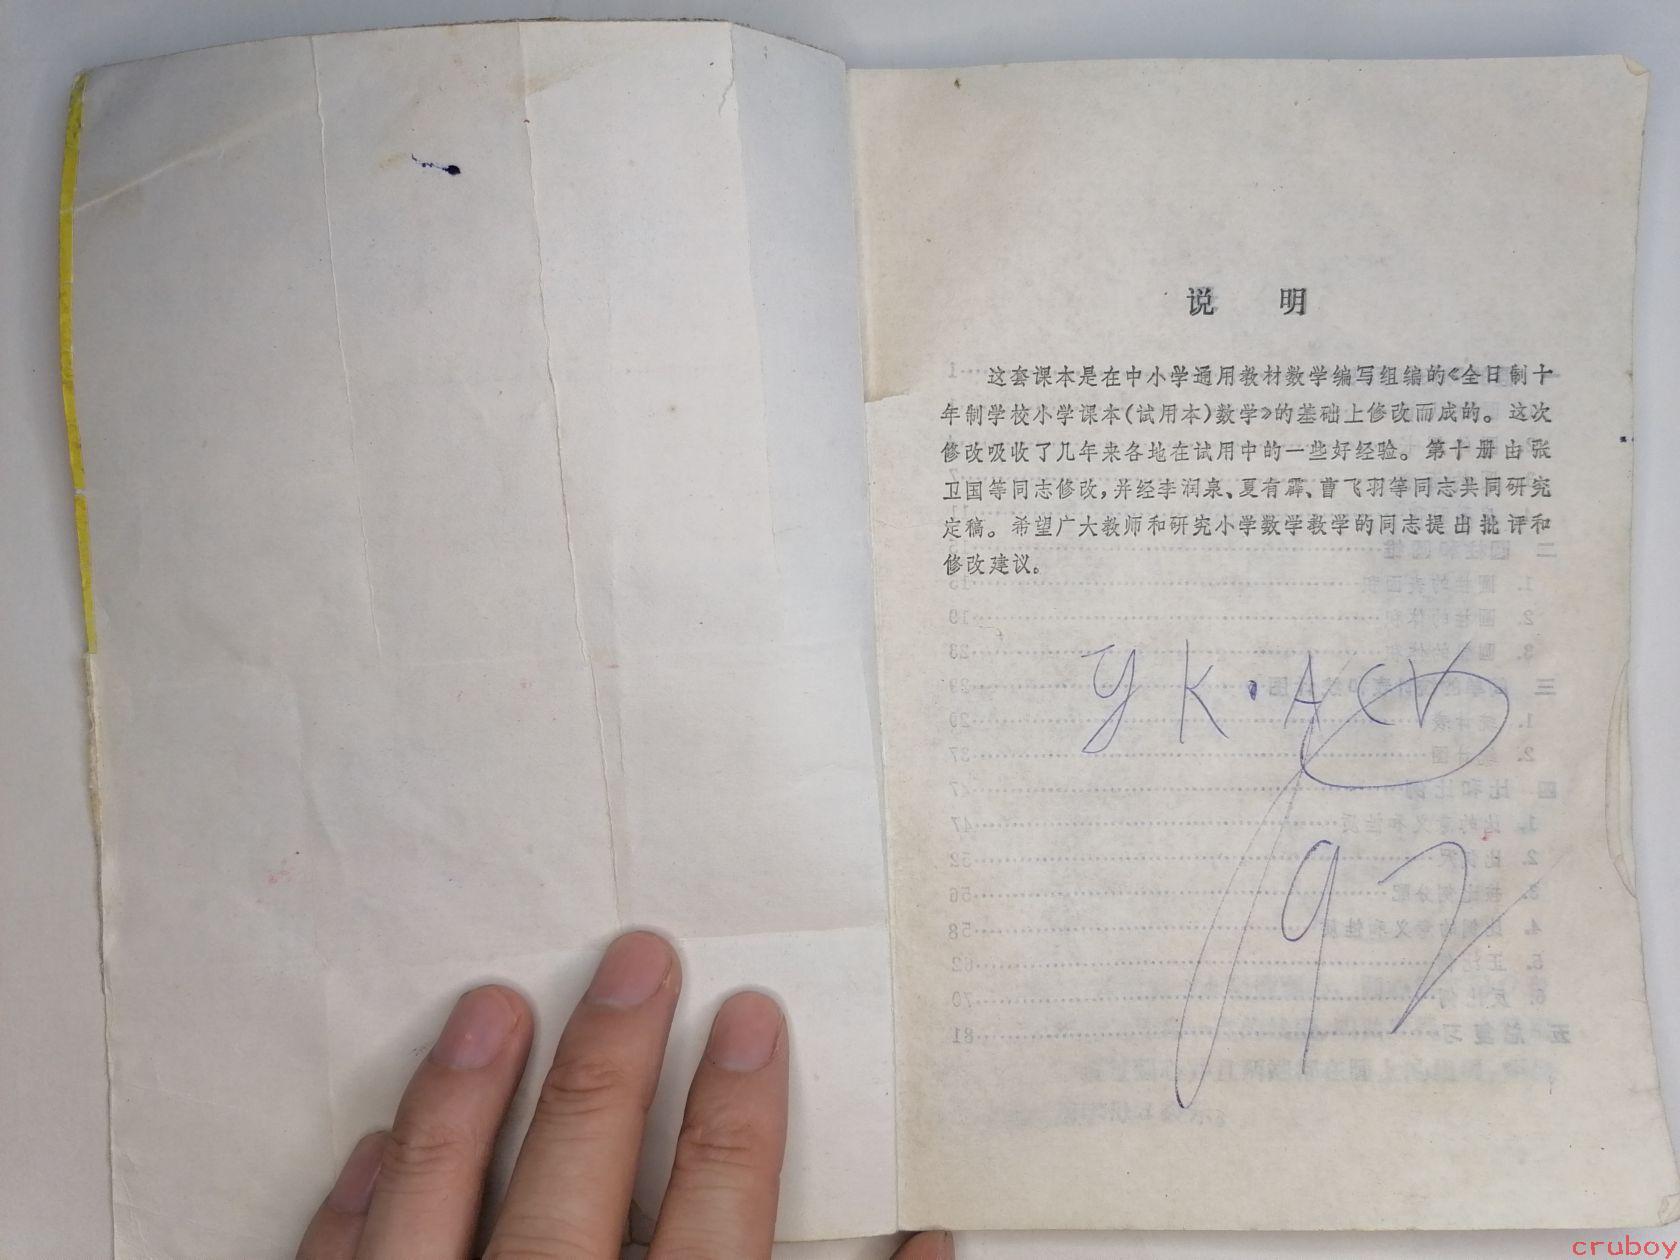 说 明
这套课本是在中小学通用教材数学编写组编的《全日制十
年制学校小学课本(试用本)数学》的基础上修改而成的。这次
修改吸收了几年来各地在试用中的一些好经验。第十册由张
卫国等同志修改，并经李润泉、夏有霖、曹飞羽等同志共同研究
定稿。希望广大教师和研究小学数学教学的同志提出批评和
修改建议。
YK·ACV
92
cruboy